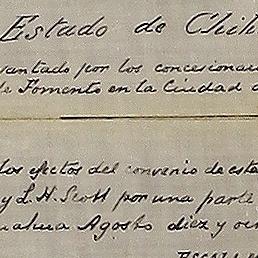 Estado de Chih
vantado por los concesiona
de Fomento en la Ciudad d
los efectos del convenio de esta
y L. H. Scott por una parte
huahua Agosto diez y oc
ESCALA